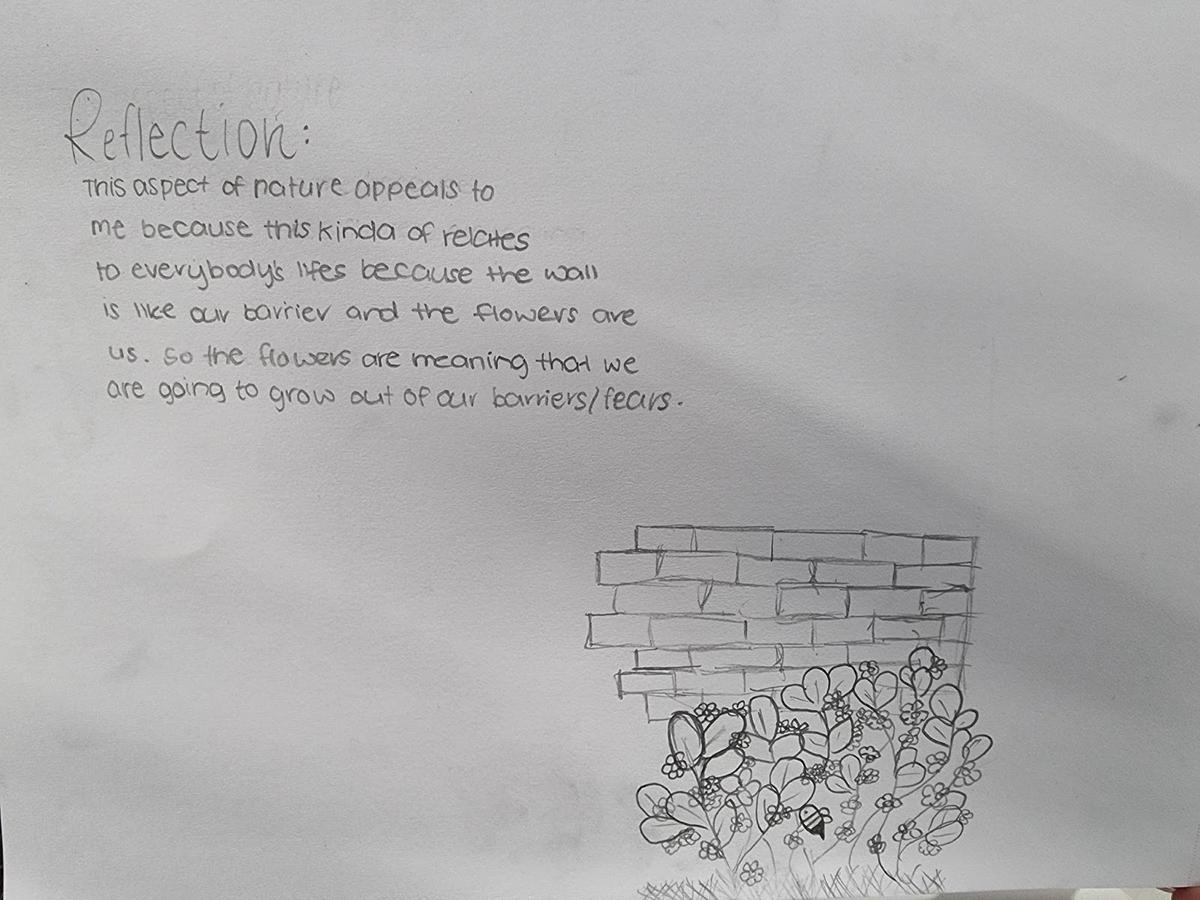 Reflection:
This aspect of nature appeals to
me because this kinda of relates
to everybody's lifes because the wall
is like our barrier and the flowers are
us. So the flowers are meaning that we
are going to grow out of our barriers/fears.